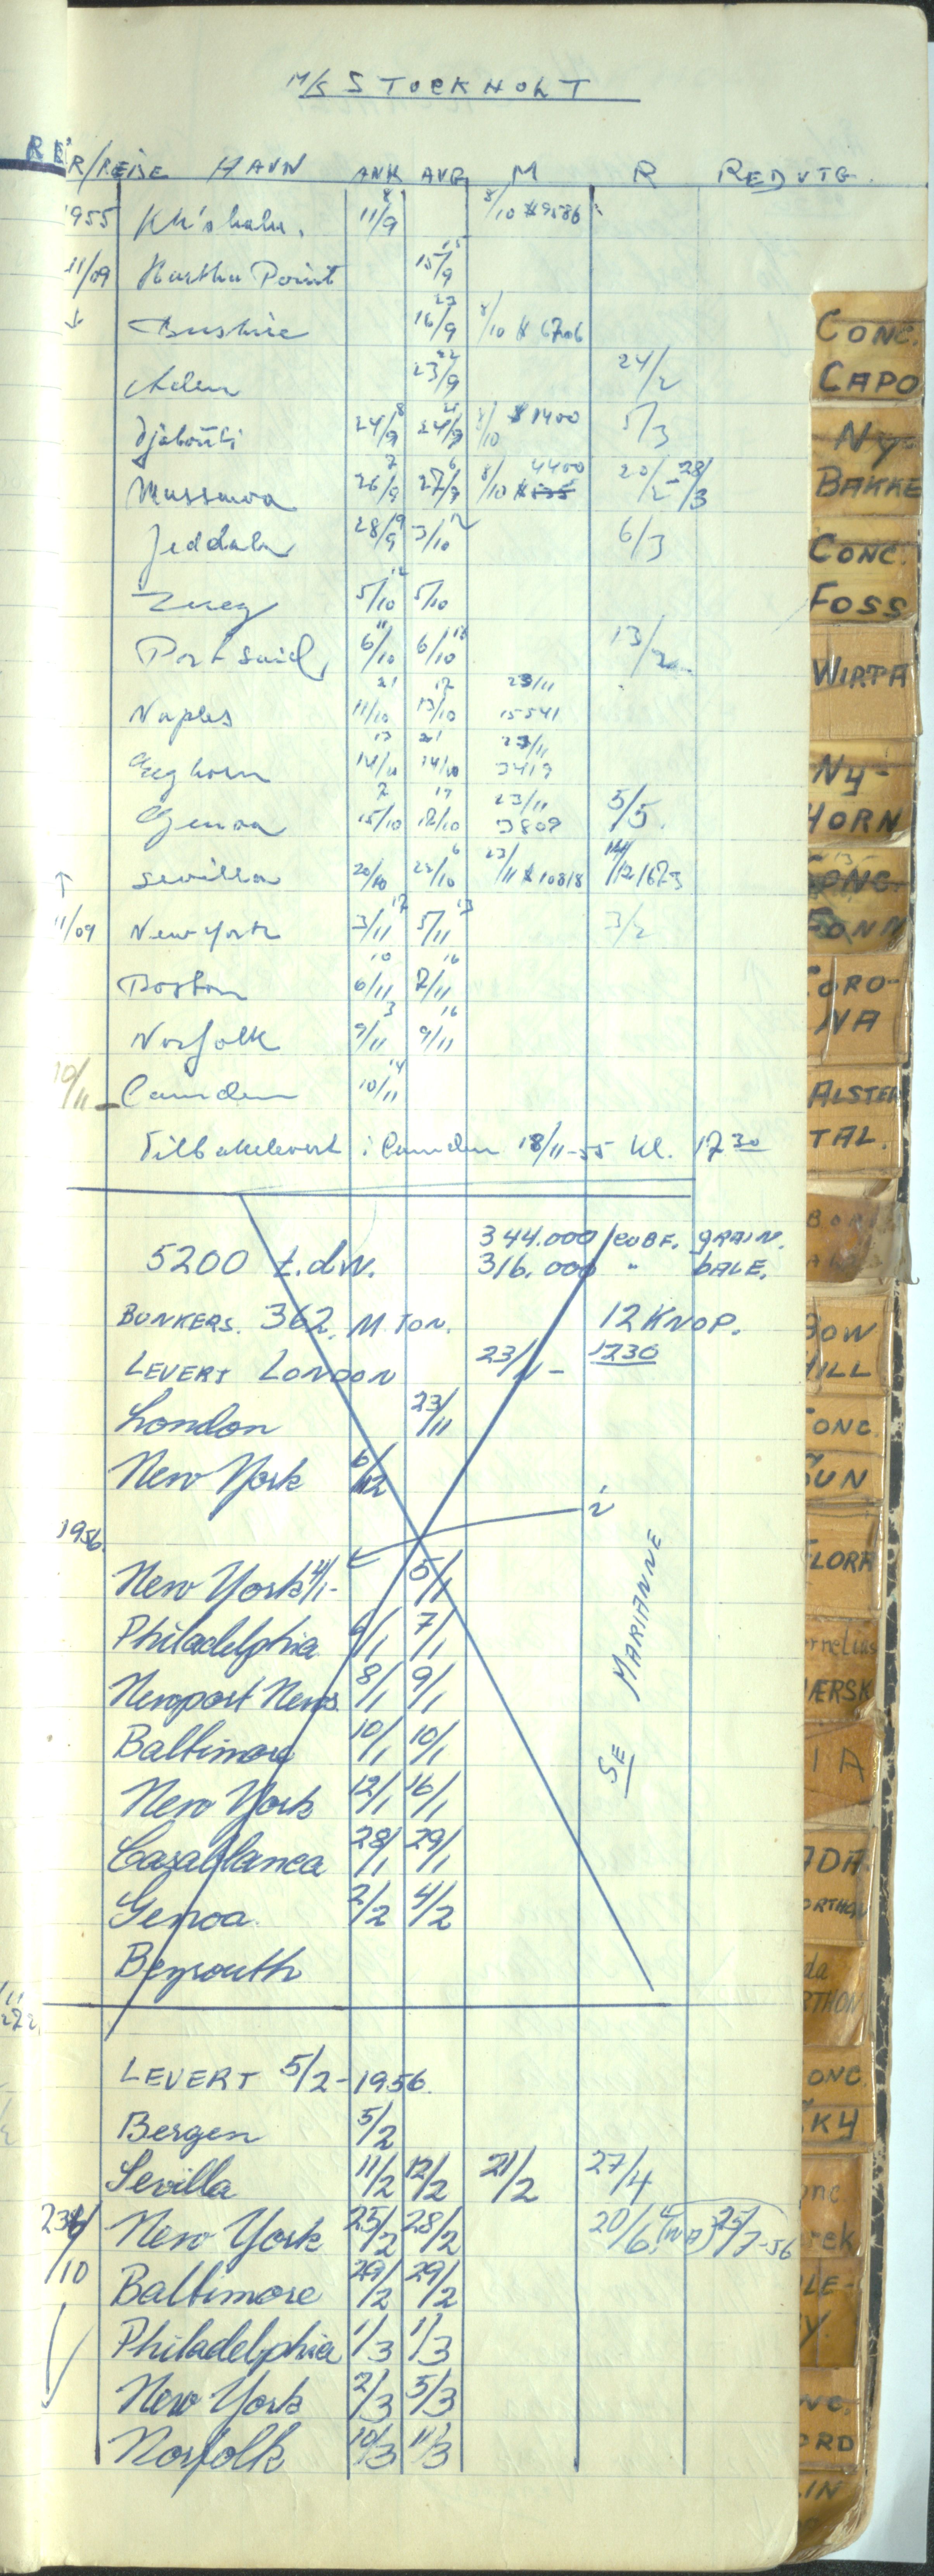 M/S STOCKHOLT
R/REISE HAVN ANK AVG M R RED UTG.
1955 Kh'shahr. 11/9 8 8/10 $9586
11/09 Point 15/9
Bushire 16/9 23 8/10 $ 6706
Aden 23/9 22 24/2
Djibouti 24/9 8 24/9 21 8/10 $ 1400 5/3
Massawa 26/9 7 27/9 6 8/10 $ 4400 20/2 - 28/3
Jeddah 28/9 19 3/10 12 6/3
Suez 5/10 12 5/10
Port Said, 6/10 11 6/10 13/2
Naples 11/10 21 13/10 17 23/11 15541
Leghorn 14/10 13 14/10 21 23/11 3419
Genoa 15/10 7 18/10 17 23/11 3809 5/5.
Sevilla 20/10 25/10 6 23/11 $10818
11/09 New York 3/11 17 5/11 13 3/2
Boston 6/11 10 7/11 16
Norfolk 9/11 3 9/11 16
10/11 - Camden 10/11 14
Tilbakelevert i Camden 18/11-55 Kl. 1730
5200 t.dw. 344.000 CUBF. GRAIN.
316.000 " BALE.
BUNKERS. 362. M TON. 12 KNOP.
LEVERT LONDON 23/11 - 1730
London 23/11
New York 6/12
1956.
New York 4/1- 5/1
Philadelphia 6/1 7/1
Newport News. 8/1 9/1
Baltimore 10/1 10/1
New York 12/1 16/1
Casablanca 28/1 29/1
Genoa. 2/2 4/2
Beyrouth
SE MARIANNE
LEVERT 5/2-1956.
Bergen 5/2
Sevilla 11/2 12/2 21/2 27/4
New York 25/2 28/2 20/6 25/7-56
/10 Baltimore 29/2 29/2
Philadelphia 1/3 1/3
New York 2/3 5/3
Norfolk 10/3 11/3
CONC.
CAPO
NY-
BAKKE
CONC.
FOSS
WIRTA
NY-
HORN
CONC.
FONN
CORO-
NA
ALSTER
TAL.
BOW
HILL
CONC.
SUN
FLORA
MÆRSK